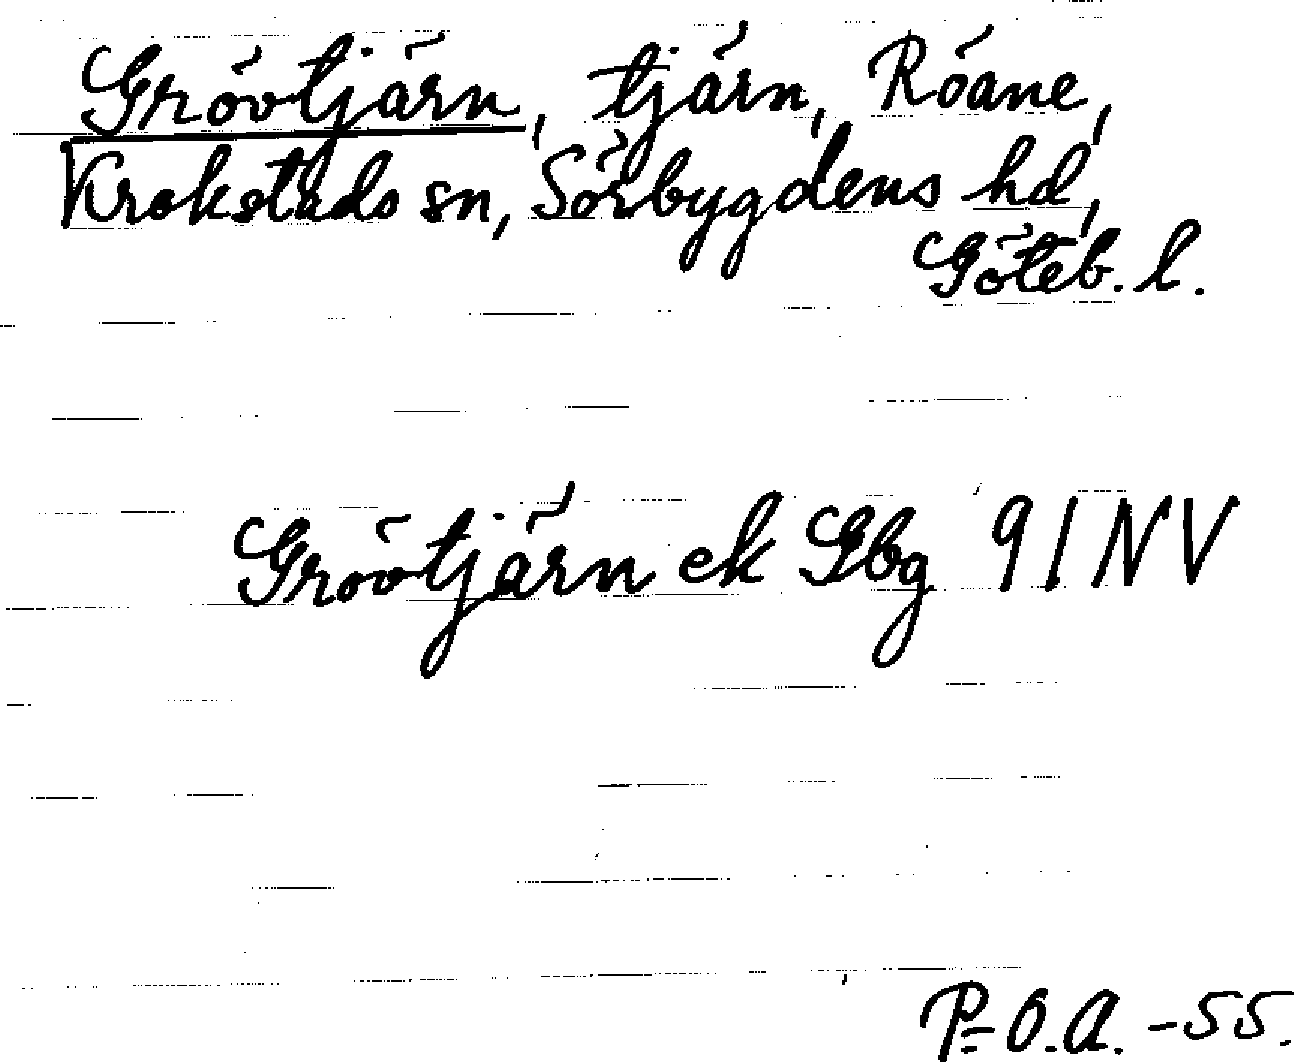 Grövtjärn, tjärn, Röane,
Krokstads sn, Sörbygdens hd,
Göteb. l.
Grövtjärn ek Gbg 9 I NV
P-O.A. -55.